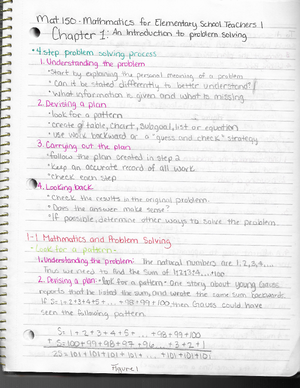 Mat 150 - Mathematics for Elementary School Teachers 1
Chapter 1: An Introduction to problem solving
• 4 step problem solving process
1. Understanding the problem
• Start by explaining the personal meaning of a problem
• Can it be stated differently to better understand?
• What information is given and what is missing
2. Devising a plan
• look for a pattern
• create a table, chart, subgoal, list or equation
• use work backward or a "guess and check" strategy
3. Carrying out the plan
• follow the plan created in step 2
• keep an accurate record of all work
• check each step
4. Looking back
• Check the results in the original problem.
• Does the answer make sense?
• If possible, determine other ways to solve the problem.
1-1 Mathematics and Problem Solving
• Look for a pattern •
1. Understanding the problem: The natural numbers are 1, 2, 3, 4...
Thus we need to find the sum of 1+2+3+4...+100
2. Devising a plan: • look for a pattern • One story about young Gauss
reports that he listed the sum, and wrote the same sum backwards
If S = 1+2+3+4+5+ ... +98+99+100, then Gauss could have
seen the following pattern.
S = 1 + 2 + 3 + 4 + 5 + ... + 98 + 99 + 100
+ S = 100 + 99 + 98 + 97 + 96 ... + 3 + 2 + 1
2S = 101 + 101 + 101 + 101 + ... + 101 + 101 + 101
Figure 1